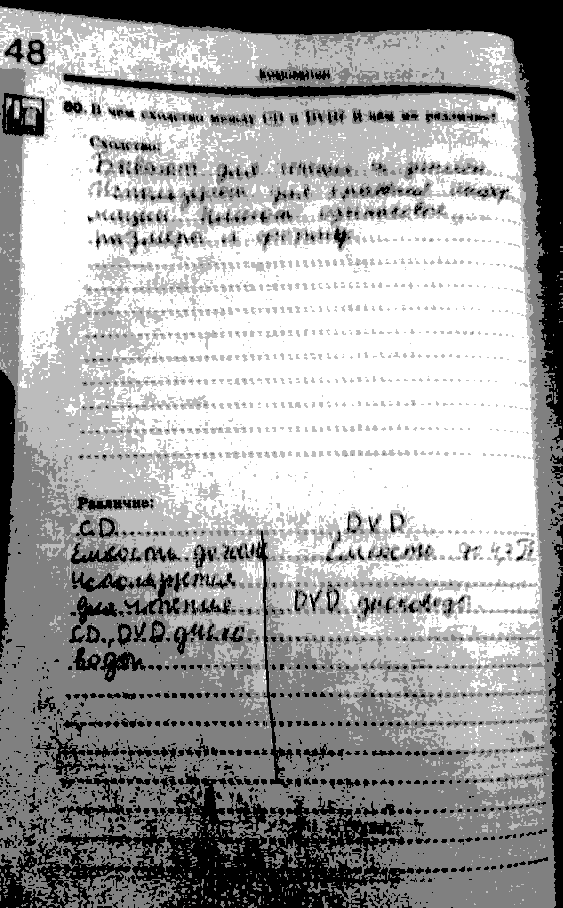 48
80. В чем сходство между CD и DVD? В чем их различие?
Сходство:
Бывают для чтения и записи
для хранения инфор
мации. Имеют одинаковое
размера и форму
Различие:
CD
DVD
Ёмкость до
Ёмкость до 4,7 Гб
используется
для чтения
DVD дисководы
CD, DVD диско
воды